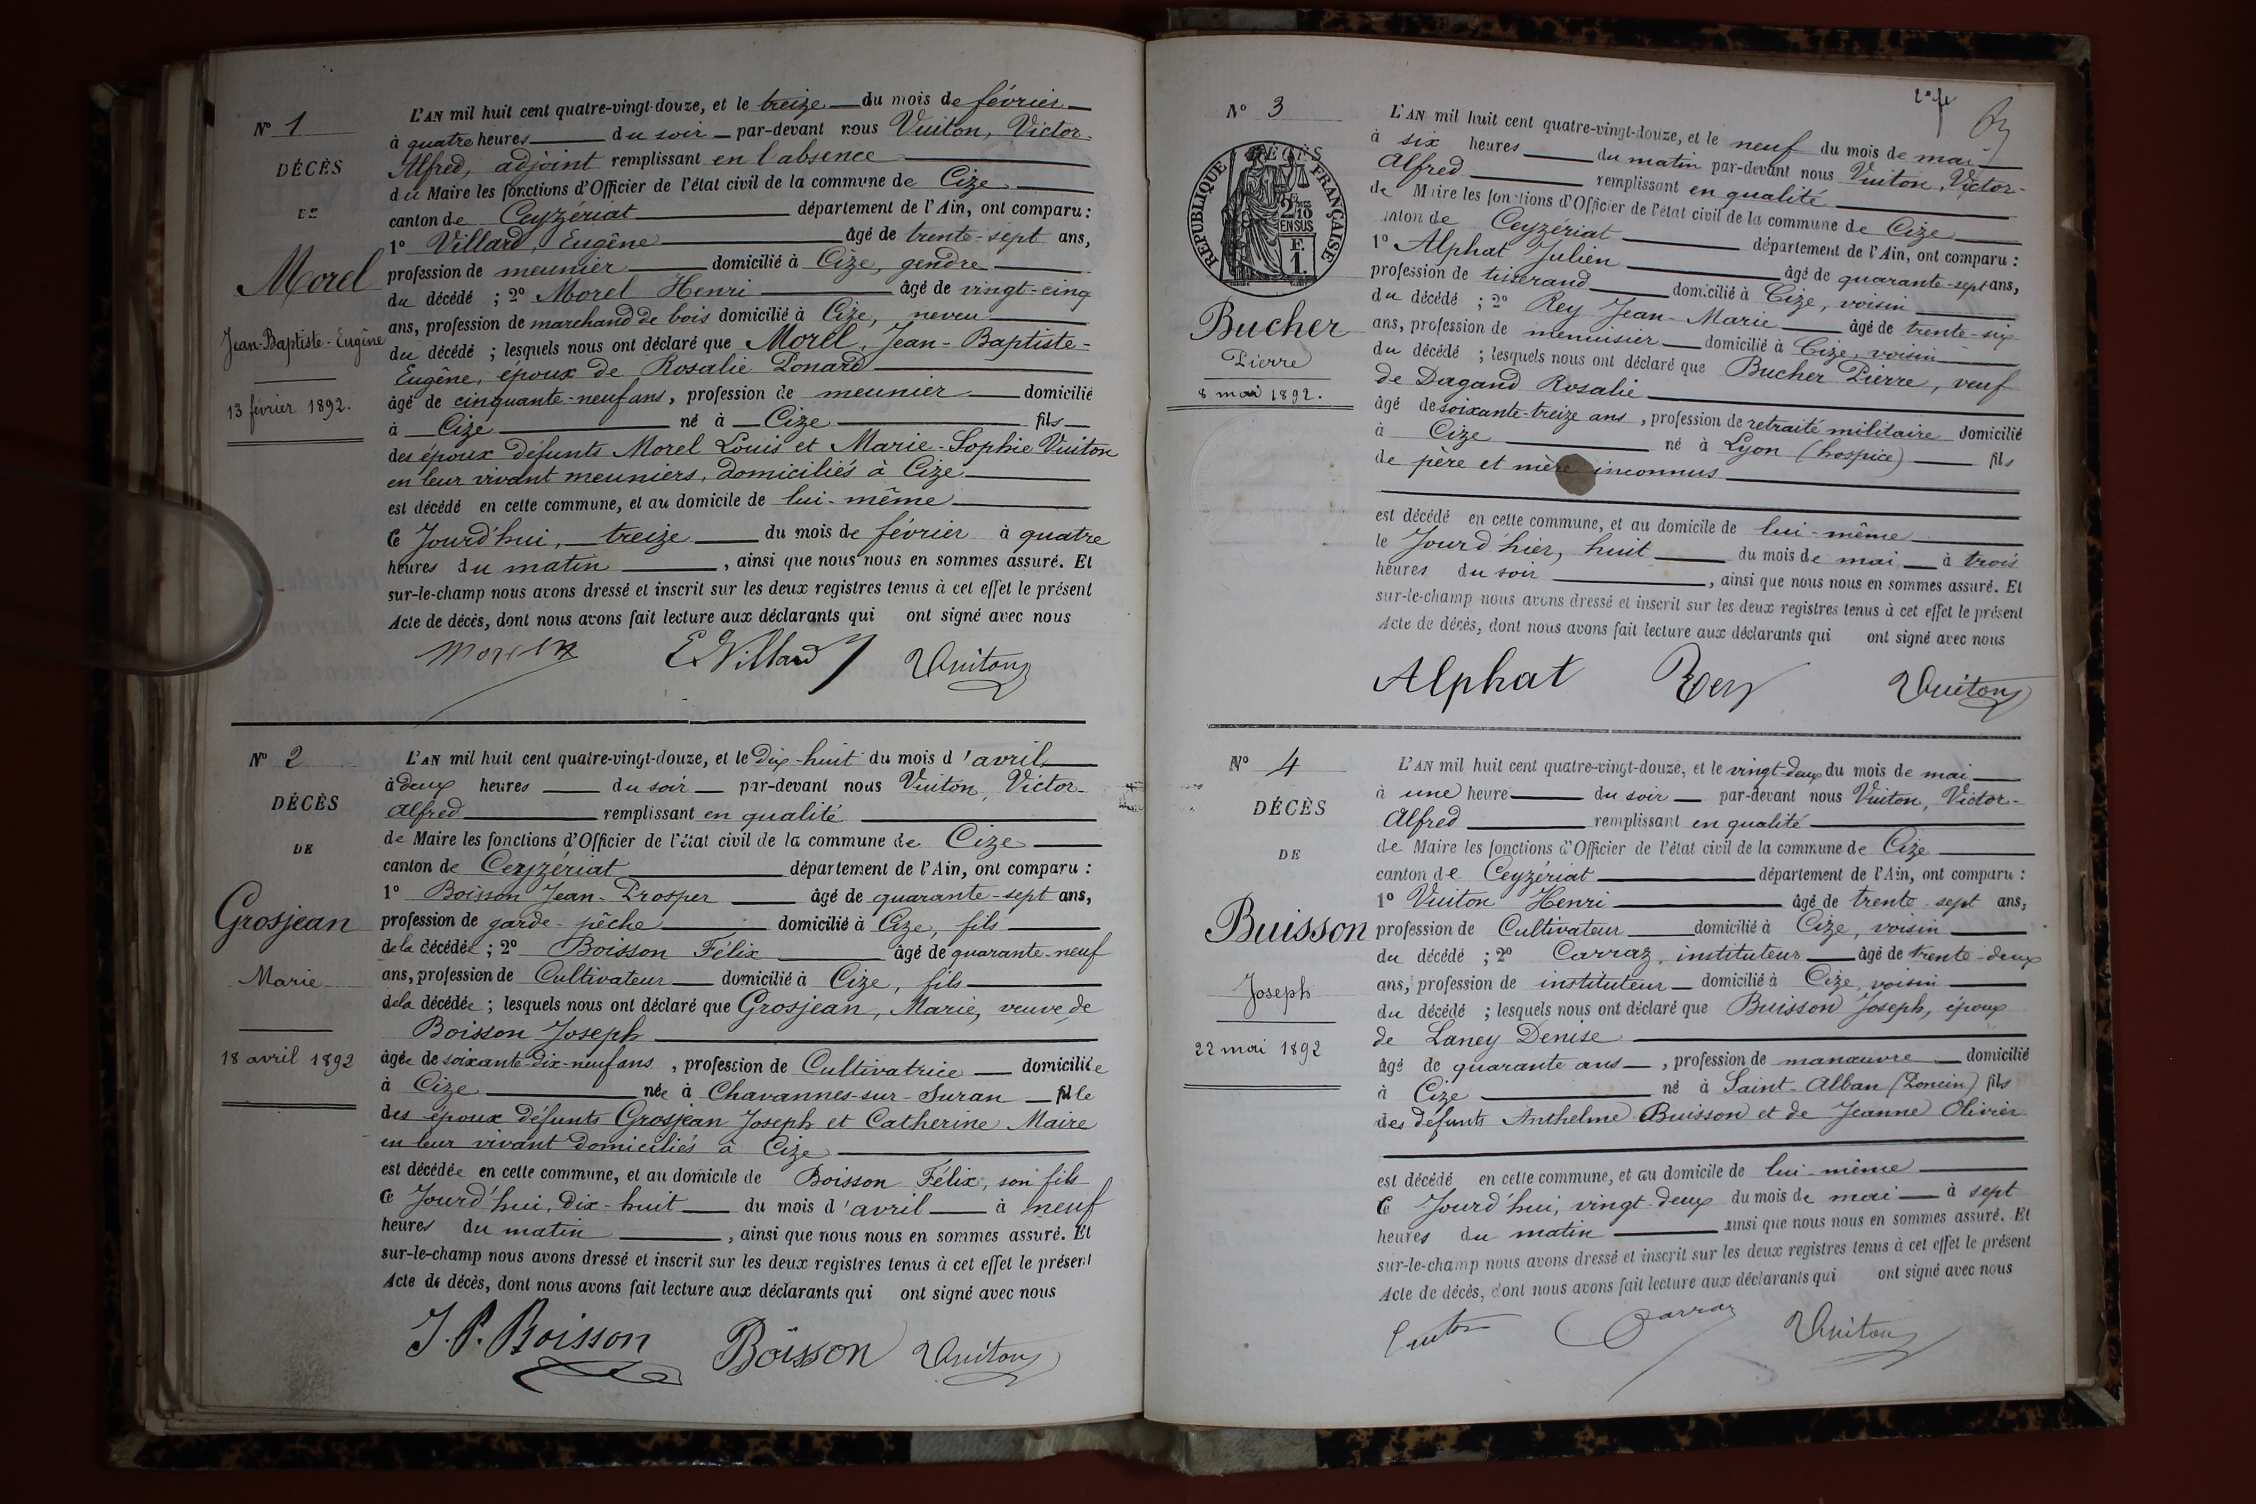 N° 1
DÉCÈS
DE
Morel
Jean-Baptiste-Eugêne
13 février 1892.
L'AN mil huit cent quatre-vingt-douze, et le treize du mois de février
à quatre heures du soir par-devant nous Vuiton, Victor-
Alfred, adjoint remplissant en l'absence
du Maire les fonctions d'Officier de l'état civil de la commune de Cize
canton de Ceyzériat département de l'Ain, ont comparu :
1° Villard, Eugêne âgé de trente-sept ans,
profession de meunier domicilié à Cize, gendre
du décédé ; 2° Morel Henri âgé de vingt-cinq
ans, profession de marchand de bois domicilié à Cize, neveu
du décédé ; lesquels nous ont déclaré que Morel, Jean-Baptiste-
Eugêne, époux de Rosalie Ponard
âgé de cinquante-neuf ans, profession de meunier domicilié
à Cize né à Cize fils
des époux défunts Morel Louis et Marie-Sophie Vuiton
en leur vivant meuniers, domiciliés à Cize
est décédé en cette commune, et au domicile de lui-même
Ce Jourd'hui, treize du mois de février à quatre
heures du matin , ainsi que nous nous en sommes assuré. Et
sur-le-champ nous avons dressé et inscrit sur les deux registres tenus à cet effet le présent
Acte de décès, dont nous avons fait lecture aux déclarants qui ont signé avec nous
E. Villard Vuiton
N° 2
DÉCÈS
DE
Grosjean
Marie
18 avril 1892
L'AN mil huit cent quatre-vingt-douze, et le dix-huit du mois d'avril
à deux heures du soir par-devant nous Vuiton, Victor-
Alfred remplissant en qualité
de Maire les fonctions d'Officier de l'état civil de la commune de Cize
canton de Ceyzériat département de l'Ain, ont comparu :
1° Boisson Jean-Prosper âgé de quarante-sept ans,
profession de garde-pêche domicilié à Cize, fils
de la décédée ; 2° Boisson Félix âgé de quarante-neuf
ans, profession de Cultivateur domicilié à Cize, fils
de la décédée ; lesquels nous ont déclaré que Grosjean, Marie, veuve de
Boisson Joseph
âgée de soixante-dix-neuf ans , profession de Cultivatrice domiciliée
à Cize née à Chavannes-sur-Suran fille
des époux défunts Grosjean Joseph et Catherine Maire
en leur vivant domiciliés à Cize
est décédée en cette commune, et au domicile de Boisson Félix, son fils
Ce Jourd'hui, dix-huit du mois d'avril à neuf
heures du matin , ainsi que nous nous en sommes assuré. Et
sur-le-champ nous avons dressé et inscrit sur les deux registres tenus à cet effet le présent
Acte de décès, dont nous avons fait lecture aux déclarants qui ont signé avec nous
J. P. Boisson Boisson Vuiton
N° 3
DÉCÈS
REPUBLIQUE FRANÇAISE
2/10 EN SUS
F. 1.
Bucher
Pierre
8 mai 1892.
L'AN mil huit cent quatre-vingt-douze, et le neuf du mois de mai
à six heures du matin par-devant nous Vuiton, Victor-
Alfred remplissant en qualité
de Maire les fonctions d'Officier de l'état civil de la commune de Cize
canton de Ceyzériat département de l'Ain, ont comparu :
1° Alphat Julien âgé de quarante-sept ans,
profession de tisserand domicilié à Cize, voisin
du décédé ; 2° Rey Jean-Marie âgé de trente-six
ans, profession de menuisier domicilié à Cize, voisin
du décédé ; lesquels nous ont déclaré que Bucher Pierre, veuf
de Dagand Rosalie
âgé de soixante-treize ans , profession de retraité militaire domicilié
à Cize né à Lyon (hospice) fils
de père et mère inconnus
est décédé en cette commune, et au domicile de lui-même
le Jourd'hier, huit du mois de mai à trois
heures du soir , ainsi que nous nous en sommes assuré. Et
sur-le-champ nous avons dressé et inscrit sur les deux registres tenus à cet effet le présent
Acte de décès, dont nous avons fait lecture aux déclarants qui ont signé avec nous
Alphat Rey Vuiton
N° 4
DÉCÈS
DE
Buisson
Joseph
22 mai 1892
L'AN mil huit cent quatre-vingt-douze, et le vingt-deux du mois de mai
à une heure du soir par-devant nous Vuiton, Victor-
Alfred remplissant en qualité
de Maire les fonctions d'Officier de l'état civil de la commune de Cize
canton de Ceyzériat département de l'Ain, ont comparu :
1° Vuiton Henri âgé de trente-sept ans,
profession de Cultivateur domicilié à Cize, voisin
du décédé ; 2° Carraz, instituteur âgé de trente-deux
ans, profession de instituteur domicilié à Cize, voisin
du décédé ; lesquels nous ont déclaré que Buisson Joseph, époux
de Laney Denise
âgé de quarante ans , profession de manœuvre domicilié
à Cize né à Saint-Alban (Poncin) fils
des défunts Anthelme Buisson et de Jeanne Olivier
est décédé en cette commune, et au domicile de lui-même
Ce Jourd'hui, vingt-deux du mois de mai à sept
heures du matin ainsi que nous nous en sommes assuré. Et
sur-le-champ nous avons dressé et inscrit sur les deux registres tenus à cet effet le présent
Acte de décès, dont nous avons fait lecture aux déclarants qui ont signé avec nous
Vuiton Carraz Vuiton